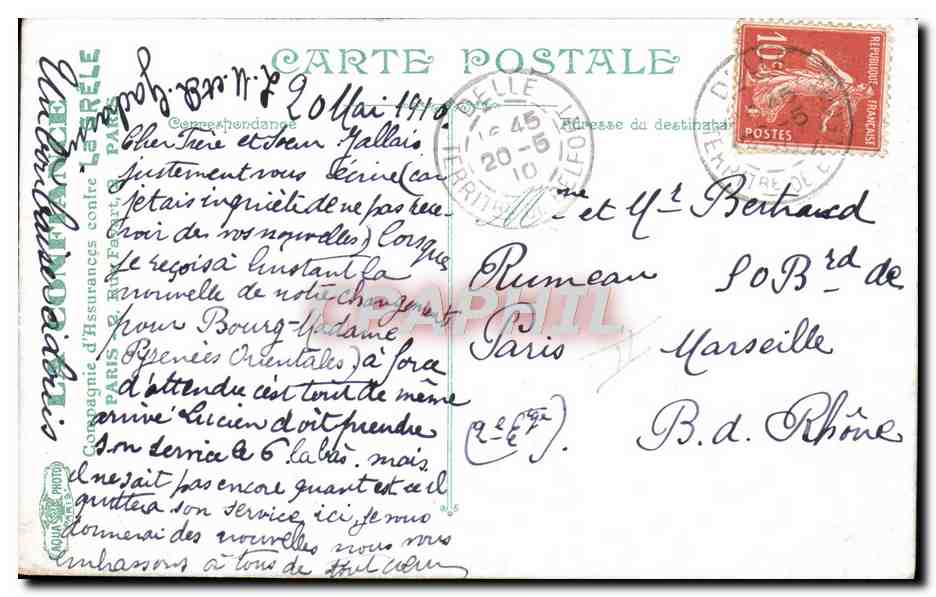 CARTE POSTALE
Correspondance
Adresse du destinataire
20 Mai 1910.
Cher Frère et Sœur Jallais
justement vous écrire (car
j'etais inquiète de ne pas rece-
voir des vos nouvelles) lorsque
je reçois à l'instant la
nouvelle de notre changement
pour Bourg-Madame
Pyrenées Orientales) à force
d'attendre c'est tout de même
arrivé Lucien doit prendre
son service le 6. la bas. mais
il ne sait pas encore quant est ce il
quittera son service ici, je vous
donnerai des nouvelles nous vous
embrassons à tous de tout cœur
me et Mr Bertrand
Rumeau 50 Brd de
Paris Marseille
(2e Etge). B. d. Rhône
DELLE
16 45
20 - 5
10
TERRITRE DE BELFORT
10c
REPUBLIQUE FRANÇAISE
POSTES
LA CONFIANCE
Compagnie d'Assurances contre LA GRÊLE
PARIS - 2, Rue Favart, 2 - PARIS
AQUA PHOTO
PARIS
CPAPHIL